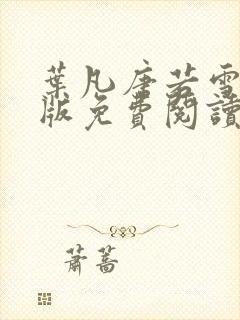 葉凡唐若雪
版免費閱讀
蕭蒿